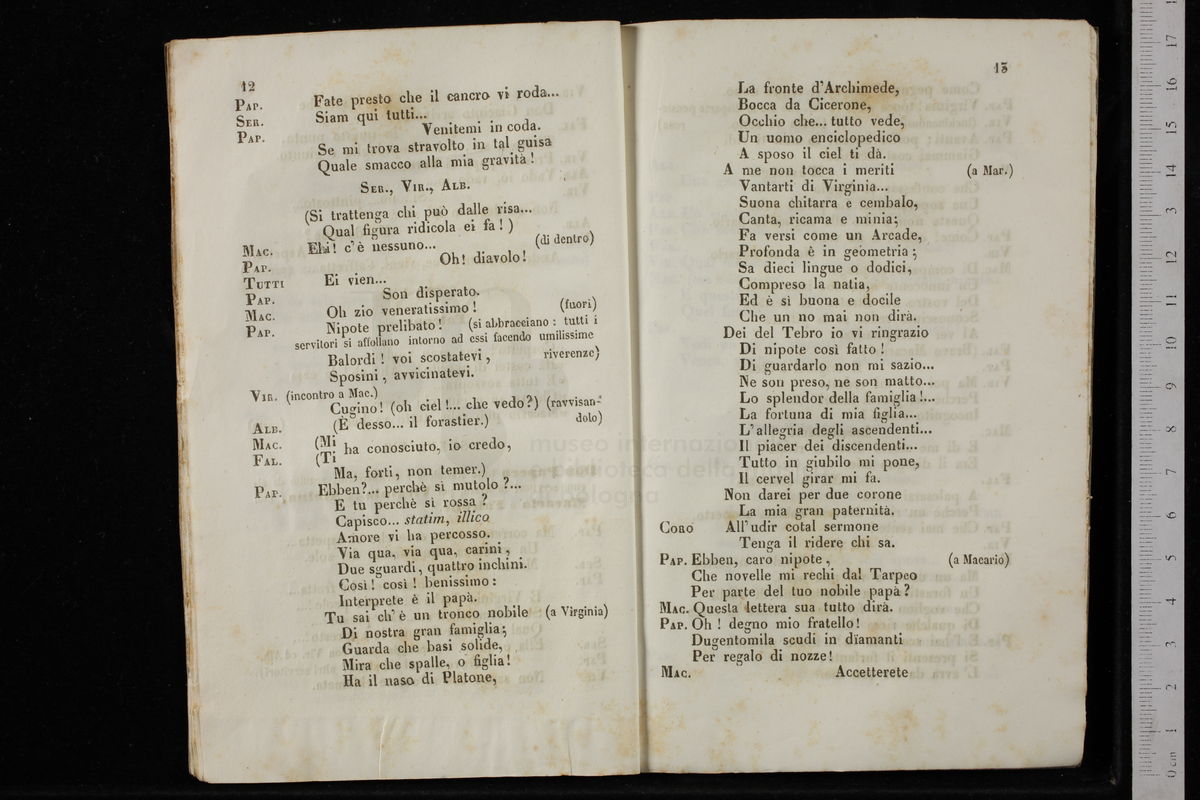 12
PAP. Fate presto che il cancro vi roda...
SER. Siam qui tutti...
PAP. Venitemi in coda.
Se mi trova stravolto in tal guisa
Quale smacco alla mia gravità!
SER., VIR., ALB.
(Si trattenga chi può dalle risa...
Qual figura ridicola ei fa!)
MAC. Ehi! c'è nessuno... (di dentro)
PAP. Oh! diavolo!
TUTTI Ei vien...
PAP. Son disperato.
MAC. Oh zio veneratissimo! (fuori)
PAP. Nipote prelibato! (si abbracciano: tutti i
servitori si affollano intorno ad essi facendo umilissime
riverenze)
Balordi! voi scostatevi,
Sposini, avvicinatevi.
VIR. (incontro a Mac.)
Cugino! (oh ciel!... che vedo?) (ravvisan-
dolo)
ALB. (È desso... il forastier.)
MAC. (Mi
FAL. (Ti ha conosciuto, io credo,
Ma, forti, non temer.)
PAP. Ebben?... perchè sì mutolo?...
E tu perchè sì rossa?
Capisco... statim, illico
Amore vi ha percosso.
Via qua, via qua, carini,
Due sguardi, quattro inchini.
Così! così! benissimo:
Interprete è il papà.
Tu sai ch'è un tronco nobile (a Virginia)
Di nostra gran famiglia;
Guarda che basi solide,
Mira che spalle, o figlia!
Ha il naso di Platone,
13
La fronte d'Archimede,
Bocca da Cicerone,
Occhio che... tutto vede,
Un uomo enciclopedico
A sposo il ciel ti dà.
A me non tocca i meriti (a Mar.)
Vantarti di Virginia...
Suona chitarra e cembalo,
Canta, ricama e minia;
Fa versi come un Arcade,
Profonda è in geometria;
Sa dieci lingue o dodici,
Compreso la natia,
Ed è sì buona e docile
Che un no mai non dirà.
Dei del Tebro io vi ringrazio
Di nipote così fatto!
Di guardarlo non mi sazio...
Ne son preso, ne son matto...
Lo splendor della famiglia!...
La fortuna di mia figlia...
L'allegria degli ascendenti...
Il piacer dei discendenti...
Tutto in giubilo mi pone,
Il cervel girar mi fa.
Non darei per due corone
La mia gran paternità.
CORO All'udir cotal sermone
Tenga il ridere chi sa.
PAP. Ebben, caro nipote, (a Macario)
Che novelle mi rechi dal Tarpeo
Per parte del tuo nobile papà?
MAC. Questa lettera sua tutto dirà.
PAP. Oh! degno mio fratello!
Dugentomila scudi in diamanti
Per regalo di nozze!
MAC. Accetterete